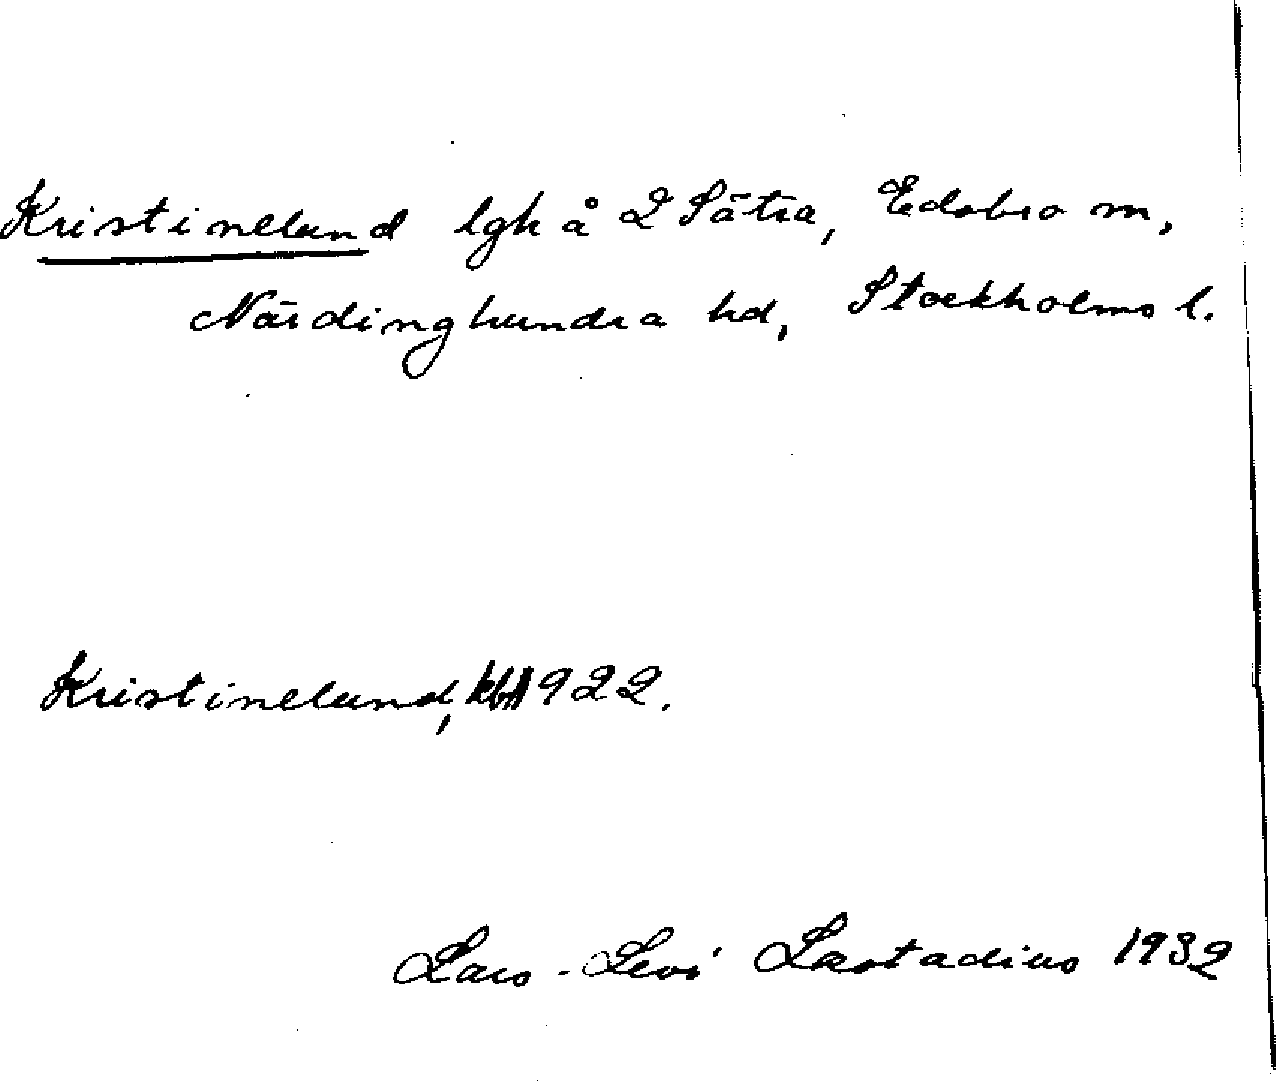 Kristinelund lgh å 2 Sätra, Edsbro sn,
Närdinghundra hd, Stockholms l.
Kristinelund, kbf 1922.
Lars-Levi Læstadius 1932